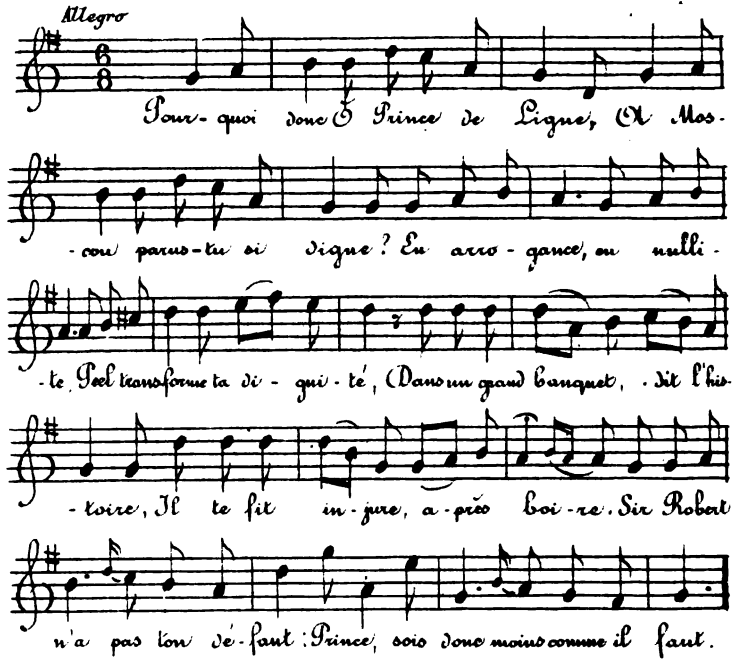 Allegro
6
8
Pour-quoi donc Ô Prince de Ligne, (A Mos-
-cou parus-tu si digne? En arro-gance, en nulli-
-te, Peel transforme ta di-gni-té, (Dans un grand banquet, dit l'his-
-toire, Il te fit in-jure, a-près boi-re. Sir Robert
n'a pas ton dé-faut: Prince, sois donc moins comme il faut.